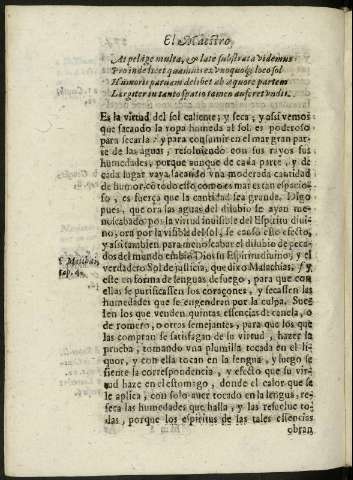 El Maestro,
At pelage multa, & late substrata videmus
Proinde licet quamuis ex vnoquoq; loco sol
Humoris paruam delibet ab æquore partem
Largiter in tanto spatio tamen auferet vndis.
Es la virtud del sol caliente; y seca; y assi vemos
que sacando la ropa humeda al sol, es poderoso
para secarla: y para consumir en el mar gran par-
te de las aguas, resoluiendo con sus rayos sus
humedades, porque aunque de cada parte, y de
cada lugar vaya sacando vna moderada cantidad
de humor, cō todo esso como es mar es tan espacio-
so, es fuerça que la cantidad sea grande. Digo
pues, que ora las aguas del dilubio se ayan me-
noscabado por la virtud inuisible del Espiritu diui-
no, ora por la visible del sol, se causó este efecto,
y assi tambien para menoscabar el dilubio de peca-
dos del mundo embio Dios su Espiritu diuino; y el
verdadero Sol de justicia, que dixo Malachias, f y
Malach.
cap. 4.
este en forma de lenguas de fuego, para que con
ellas se purificassen los coraçones, y secassen las
humedades que se engendran por la culpa. Sue-
len los que venden quintas essencias de canela, o
de romero, o otras semejantes, para que los que
las compran se satisfagan de su virtud, hazer la
prueba, tomando vna plumilla tocada en el li-
quor, y con ella tocan en la lengua, y luego se
siente la correspondencia, y efecto que su vir-
tud haze en el estomago, donde el calor que se
le aplica, con solo auer tocado en la lengua, re-
seca las humedades que halla, y las resuelue to-
das, porque los espiritus de las tales essencias
obran